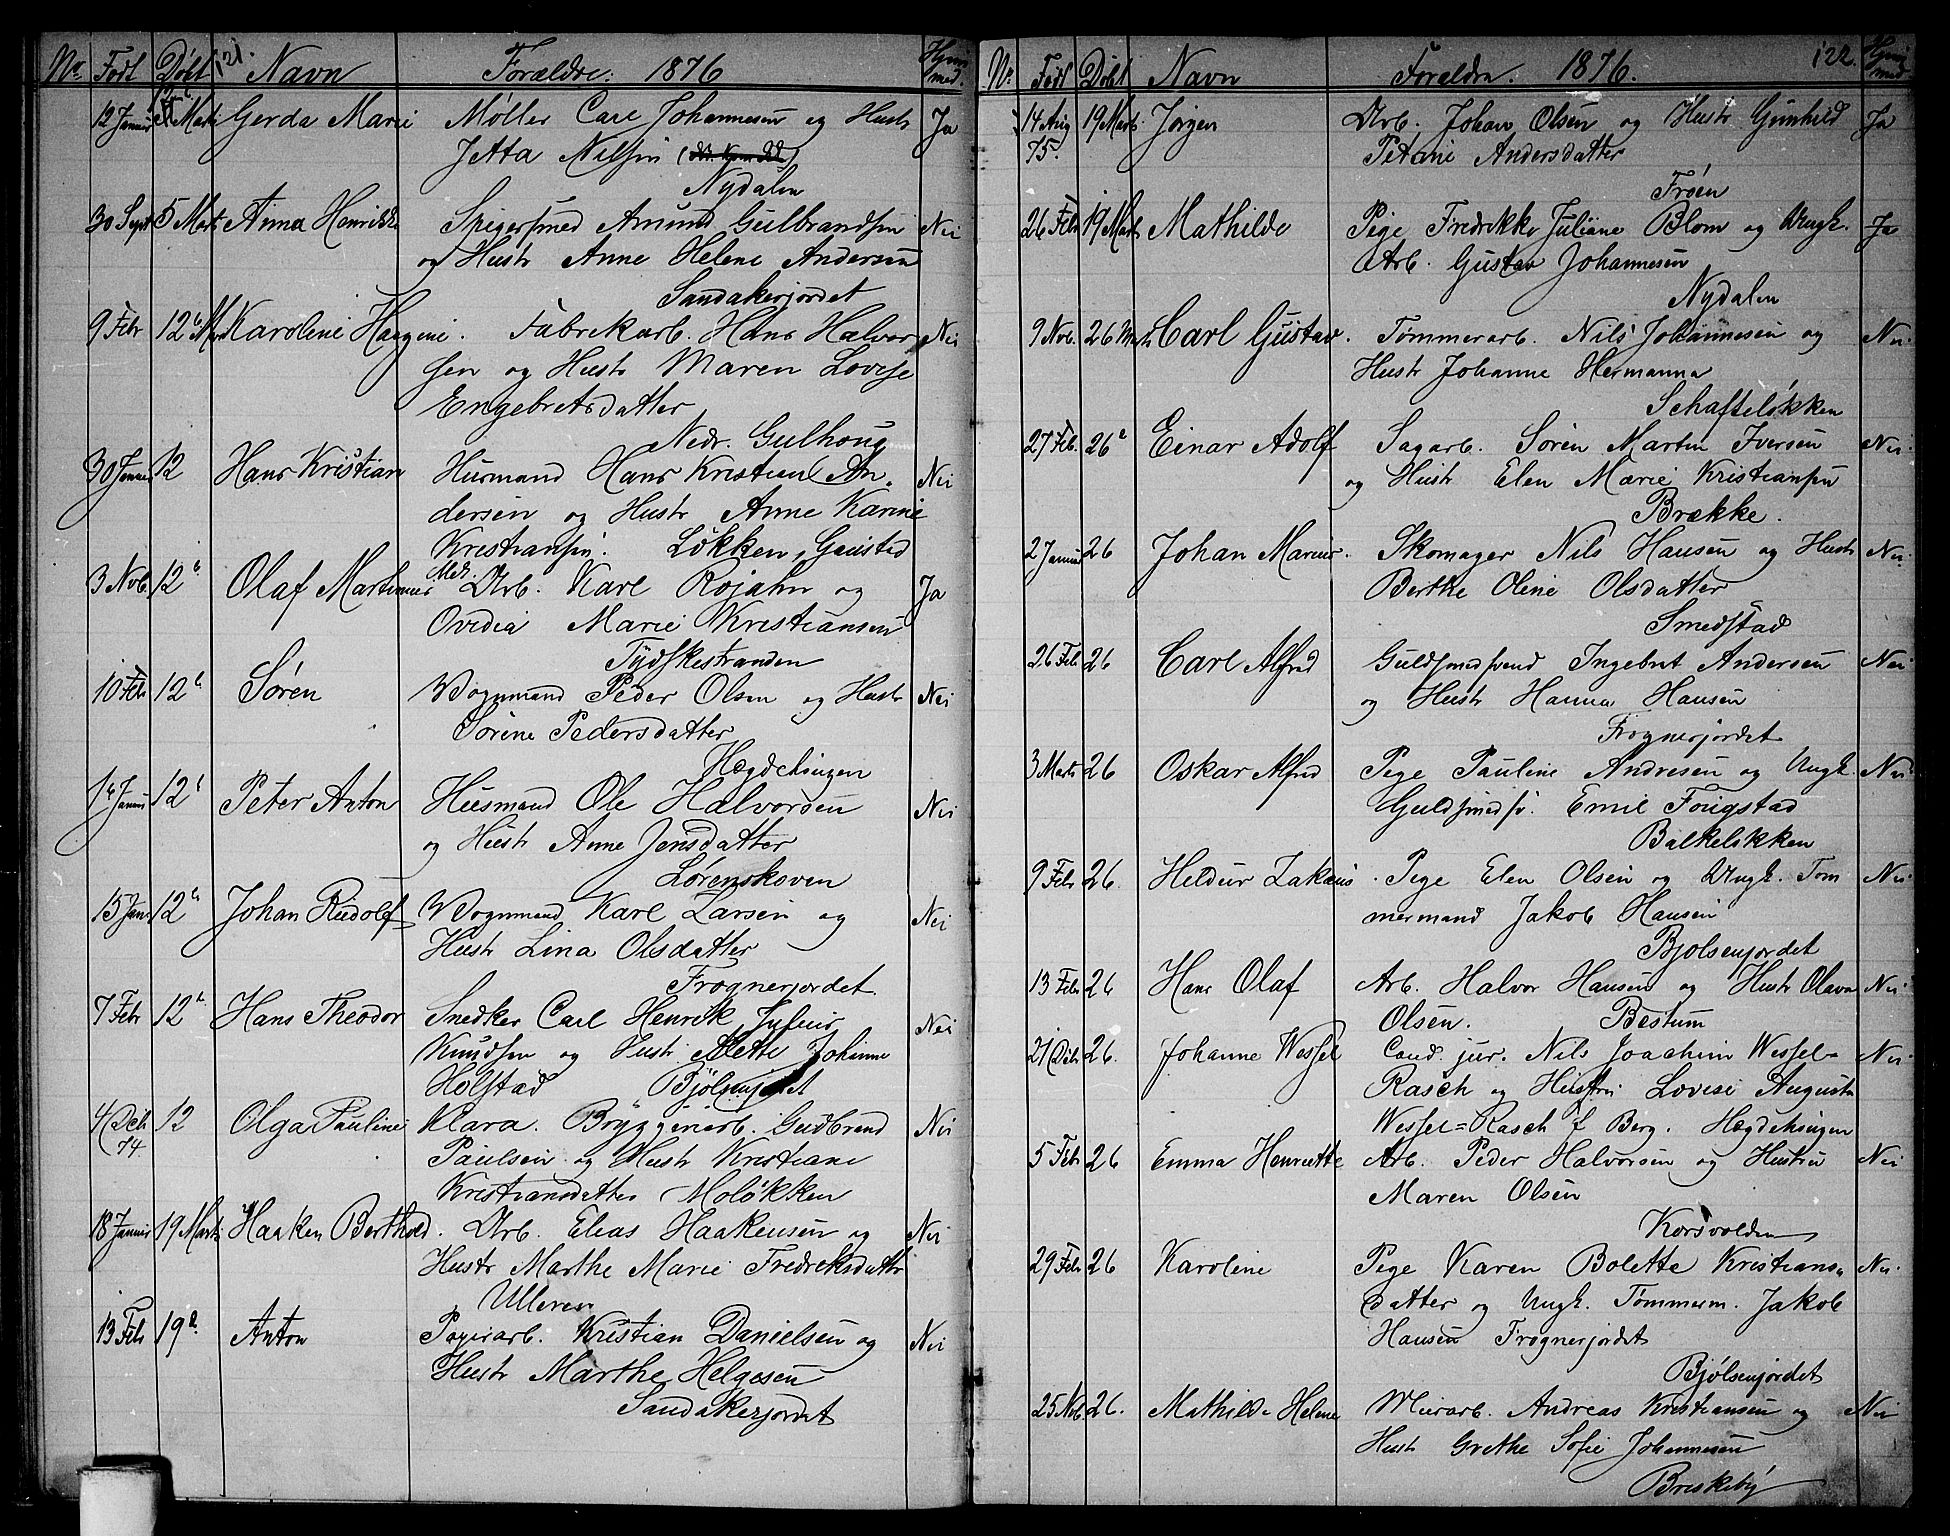 121.
No Født Døbt Navn Forældre. 1876 Hjem med.
12 Januar 5 Marts Gerda Marie Møller Carl Johannesen og Hustr Ja
Jetta Nilsen
Nydalen
30 Sept 5 Marts Anna Henrikke Spigersmed Amund Gulbrandsen Nei
og Hustr Anne Helene Andersen
Sandakerjordet
9 Febr 12 Mar Karoline Haagine. Fabrikarb. Hans Halvor- Nei
sen og Hustr Maren Lovise
Engebretsdatter
Nedr. Gulhoug
30 Januar 12 Hans Kristian Husmand Hans Kristian An- Nei
dersen og Hustr Anne Karine
Kristiansen. Løkken, Gaustad
3 Novb. 12 Olaf Martinius Arb. Karl Rojahn og Ja
Ovidia Marie Kristiansen
Tydskestranden
10 Feb 12 Søren Vognmand Peder Olsen og Hustr Nei
Sørine Pedersdatter
Hægdehaugen
1 Januar 12 Peter Anton Husmand Ole Halvorsen Nei
og Hustr Anne Jensdatter
Lørenskoven
15 Jan 12 Johan Rudolf Vognmand Karl Larsen og Nei
Hustr Lina Olsdatter
Frognerjordet.
7 Febr 12 Hans Theodor Snedker Carl Henrik Julius Nei
Knudsen og Hustr Alette Johanne
Holstad Bjølsenjordet
4 Dcb 74 12 Olga Pauline Klara. Bryggeriarb. Gudbrand Nei
Paulsen og Hustr Kristiane
Kristiansdatter Moløkken
18 Januar 19 Marts Haaken Berthold. Arb. Elias Haakensen og Nei
Hustr Marthe Marie Fredriksdatter
Ulleren
13 Feb 19 Anton Papirarb. Kristian Danielsen og Nei
Hustr Marthe Helgesen
Sandakerjordet
No Født Døbt Navn Forældre. 1876. 122. Hjem med.
14 Aug 75. 19 Marts Jørgen Arb. Johan Olsen og Hustr Gunhild Ja
Petrine Andersdatter
Frøen
26 Feb 19 Marts Mathilde Pige Fredrikke Juliane Blom og Ungk. Ja
Arb. Gustav Johannesen
Nydalen
9 Nov. 26 Marts Carl Gustav. Tømmerarb. Nils Johannesen og Nei.
Hustr Johanne Hermanna
Schafteløkken
27 Feb. 26 Einar Adolf Sagarb. Søren Martin Iversen Nei.
og Hustr Elen Marie Kristiansen
Brække.
2 Januar 26 Johan Marius. Skomager Nils Hansen og Hustr Nei.
Berthe Oline Olsdatter
Smedstad
26 Feb 26 Carl Alfred Guldsmedsvend Ingebret Andersen Nei
og Hustr Hanna Hansen
Frognerjordet
3 Marts 26 Oskar Alfred Pige Pauline Andresen og Ungk. Nei.
Guldsmedsv. Emil Fougstad
Balkeløkken
9 Feb 26. Heldur Zakæus. Pige Elen Olsen og Ungk. Tøm Nei.
mermand Jakob Hansen
Bjølsenjordet
13 Feb 26 Hans Olaf Arb. Halvor Hansen og Hustr Olava Nei.
Olsen. Bestum
21 Dcb 26. Johanne Wessel Cand. jur. Nils Joachim Wessel- Nei.
Rasch og Hustru Lovise Augusta
Wessel=Rasch f Berg. Hægdehaugen
5 Feb 26 Emma Henriette Arb. Peder Halvorsen og Hustru Nei
Maren Olsen
Korsvolden
29 Feb 26 Karoline Pige Karen Bolette Kristians- Nei.
datter og Ungk. Tømmerm. Jakob
Hansen Frognerjordet
Bjølsenjordet
25 Nvb. 26. Mathilde Helene Murarb. Andreas Kristiansen og Nei
Hustr Grethe Sofie Johannesen
Briskeby